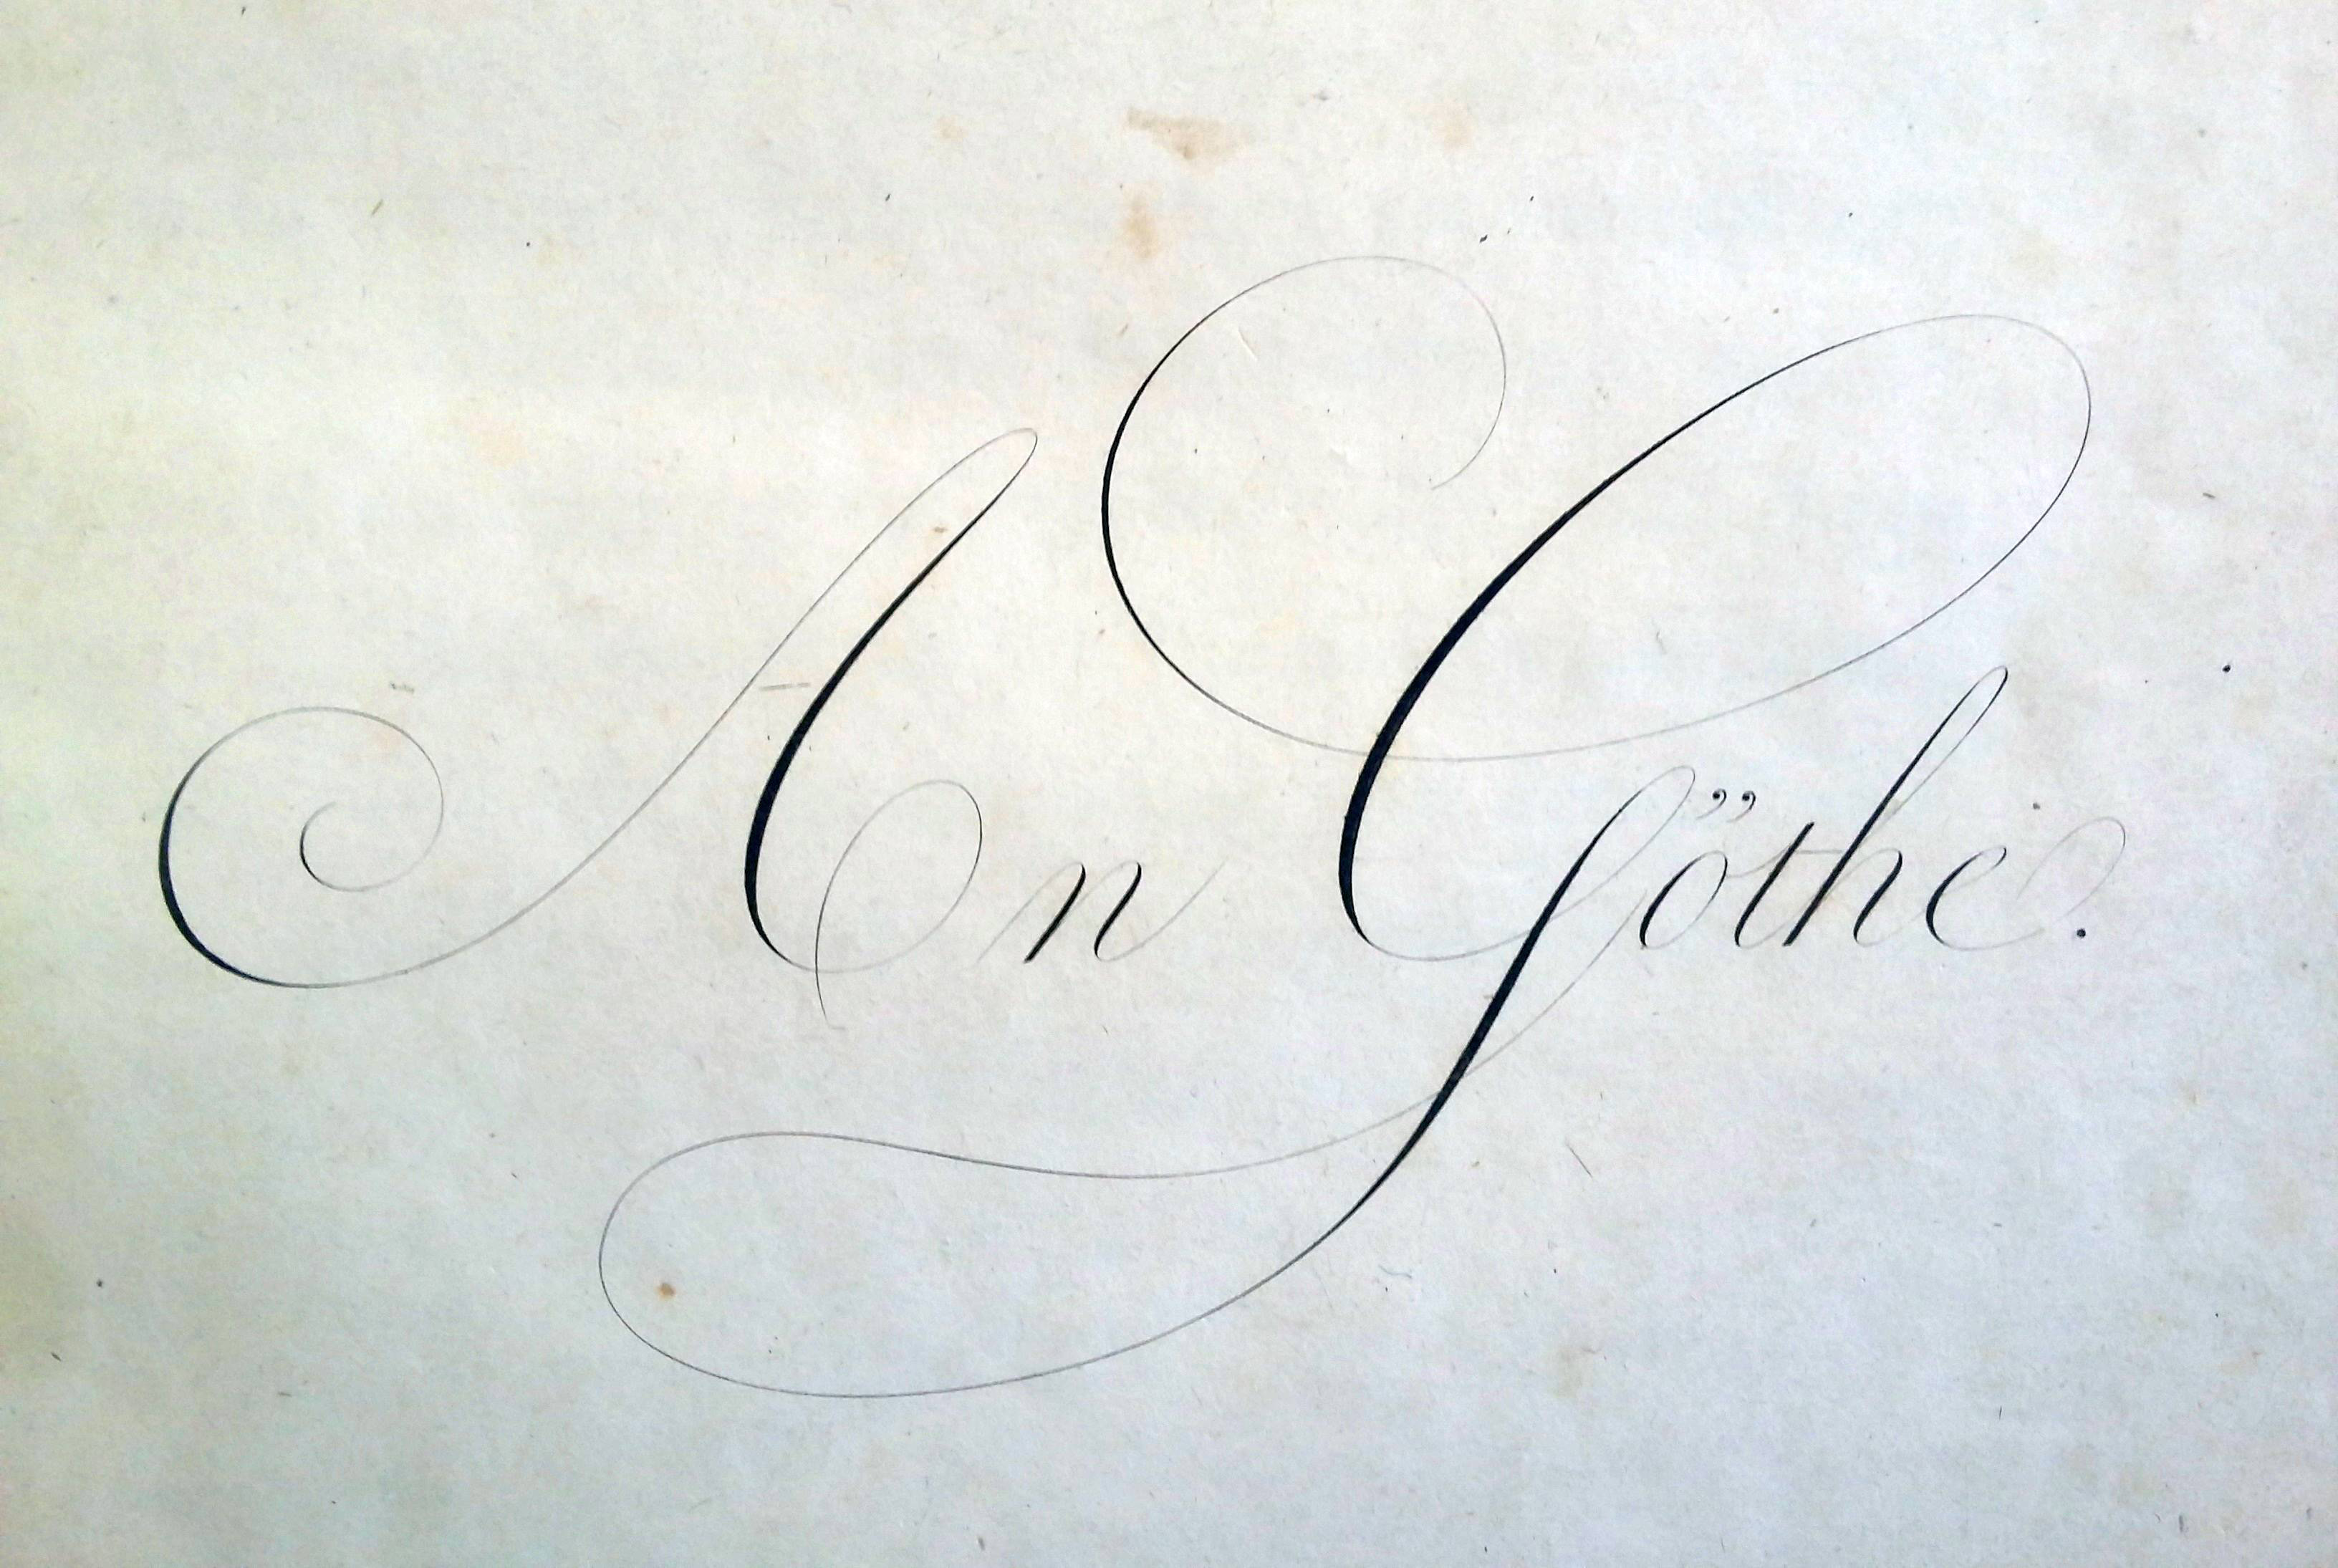 An Göthe.